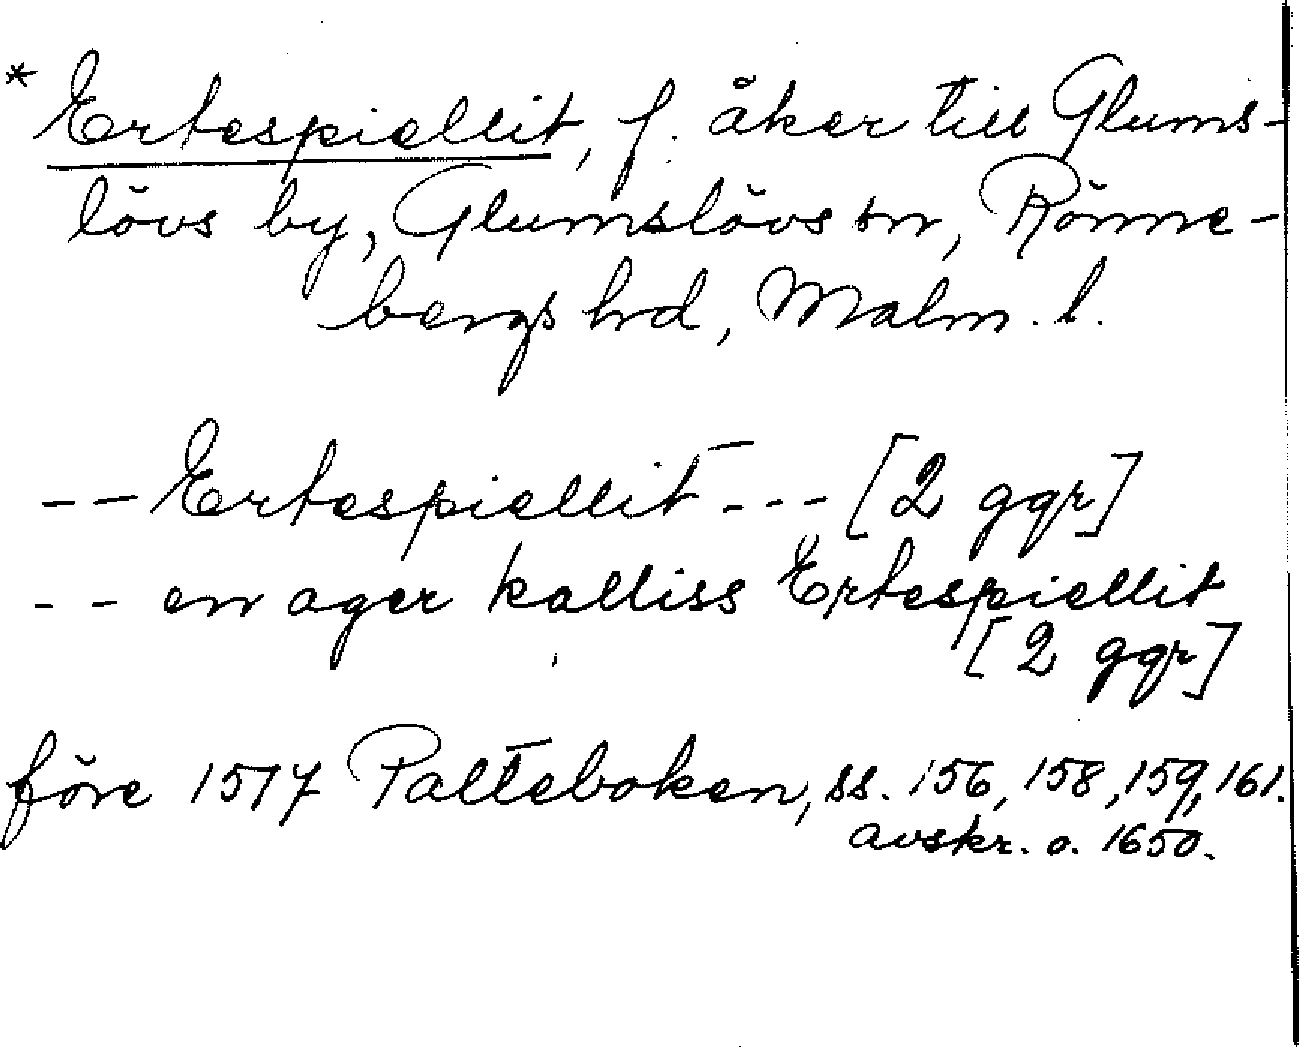 * Ertespiellit, f. åker till Glums-
lövs by, Glumslövs sn, Rönne-
bergs hrd, Malm. l.
-- Ertespiellit --- [2 ggr]
-- en ager kalliss Ertespiellit
[2 ggr]
före 1517 Palteboken, ss. 156, 158, 159, 161.
avskr. o. 1650.